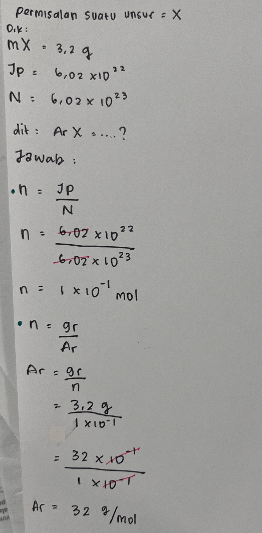 permisalan suatu unsur = X
Dik:
mX = 3,2 g
Jp = 6,02 x10²²
N = 6,02 x 10²³
dit : Ar X = ....?
Jawab :
• n = Jp
N
n = 6,02 x10²²
6,02 x 10²³
n = 1 x 10⁻¹ mol
• n = gr
Ar
Ar = gr
n
= 3,2 g
1 x10⁻¹
= 32 x 10⁻¹
1 x 10⁻¹
Ar = 32 g/mol